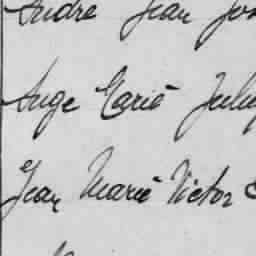 André Jean Jos
Ange Marie July
Jean Marie Victor